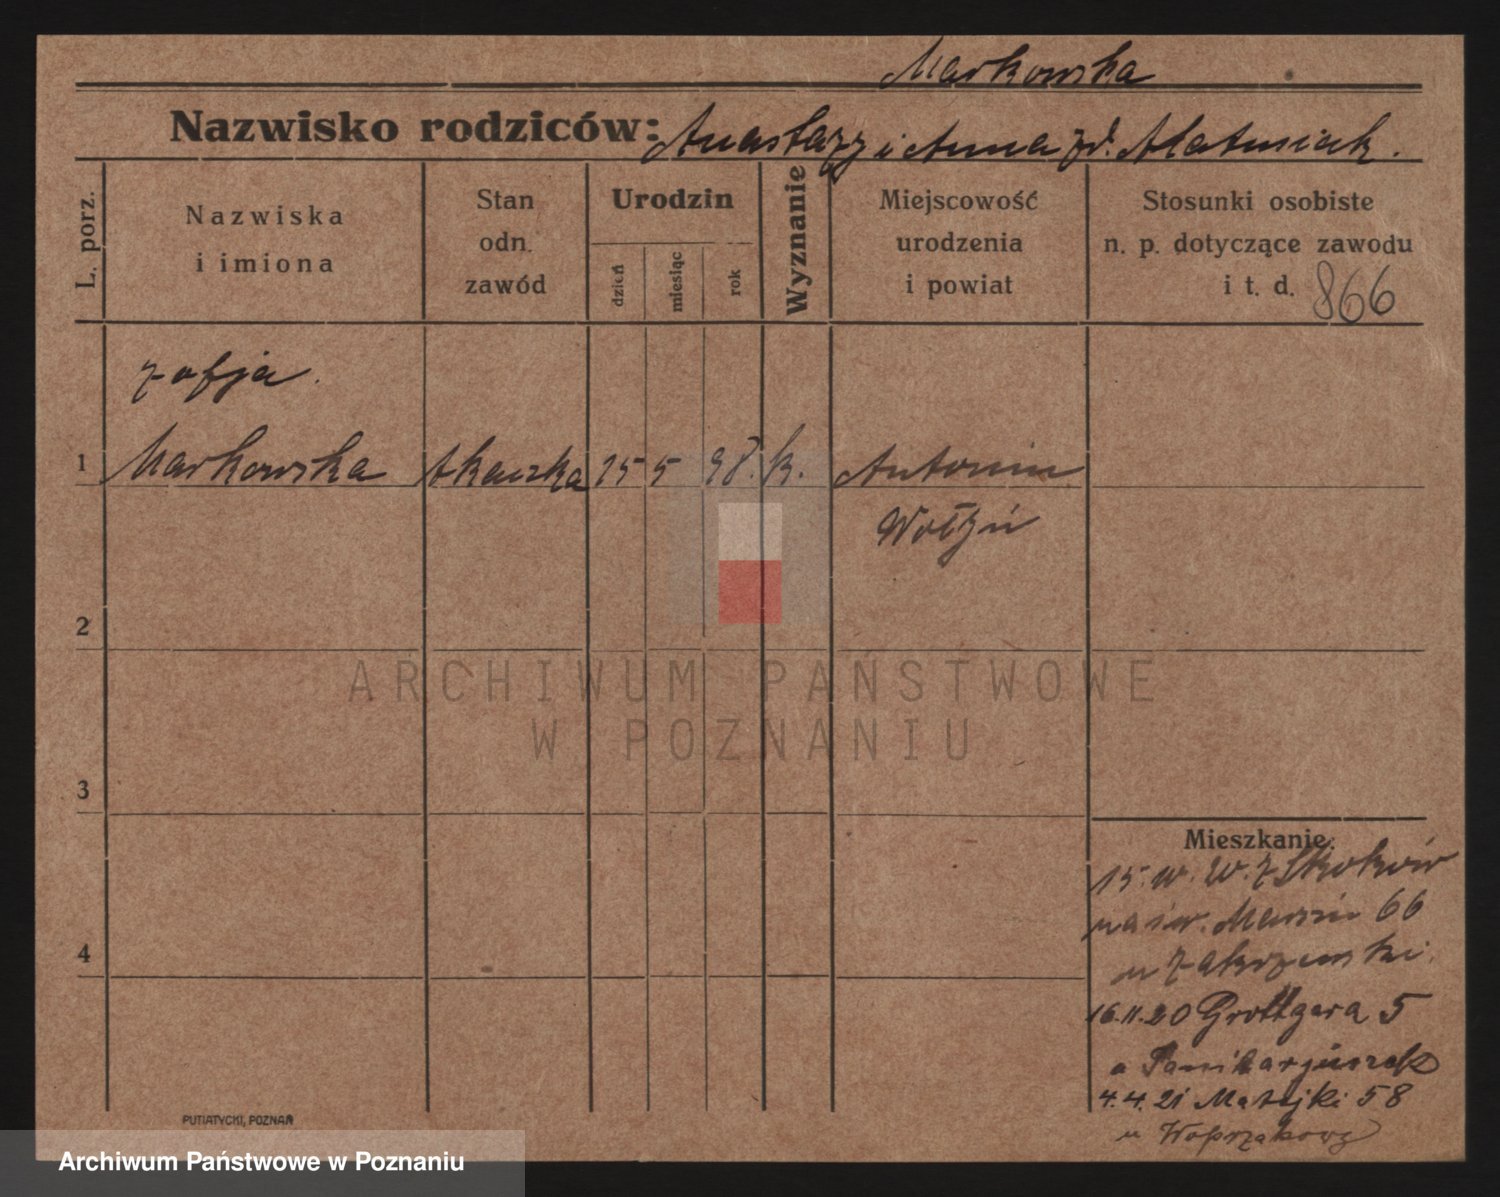 Markowska
Nazwisko rodziców: Anastazy i Anna zd. Matusiak.
L. porz.
Nazwiska
i imiona
Stan
odn.
zawód
Urodzin
dzień
miesiąc
rok
Wyznanie
Miejscowość
urodzenia
i powiat
Stosunki osobiste
n. p. dotyczące zawodu
i t. d. 866
Zofja
1 Markowska tkaczka 15 5 98. k. Antonin
Wołyń
2
ARCHIWUM PAŃSTWOWE
W POZNANIU
3
Mieszkanie:
15. z Skoków
na św. Marcin 66
4
u Zakrzewski.
16.11.20 Grottgera 5
4.4.21 Matejki 58
u
PUTIATYCKI, POZNAŃ
Archiwum Państwowe w Poznaniu